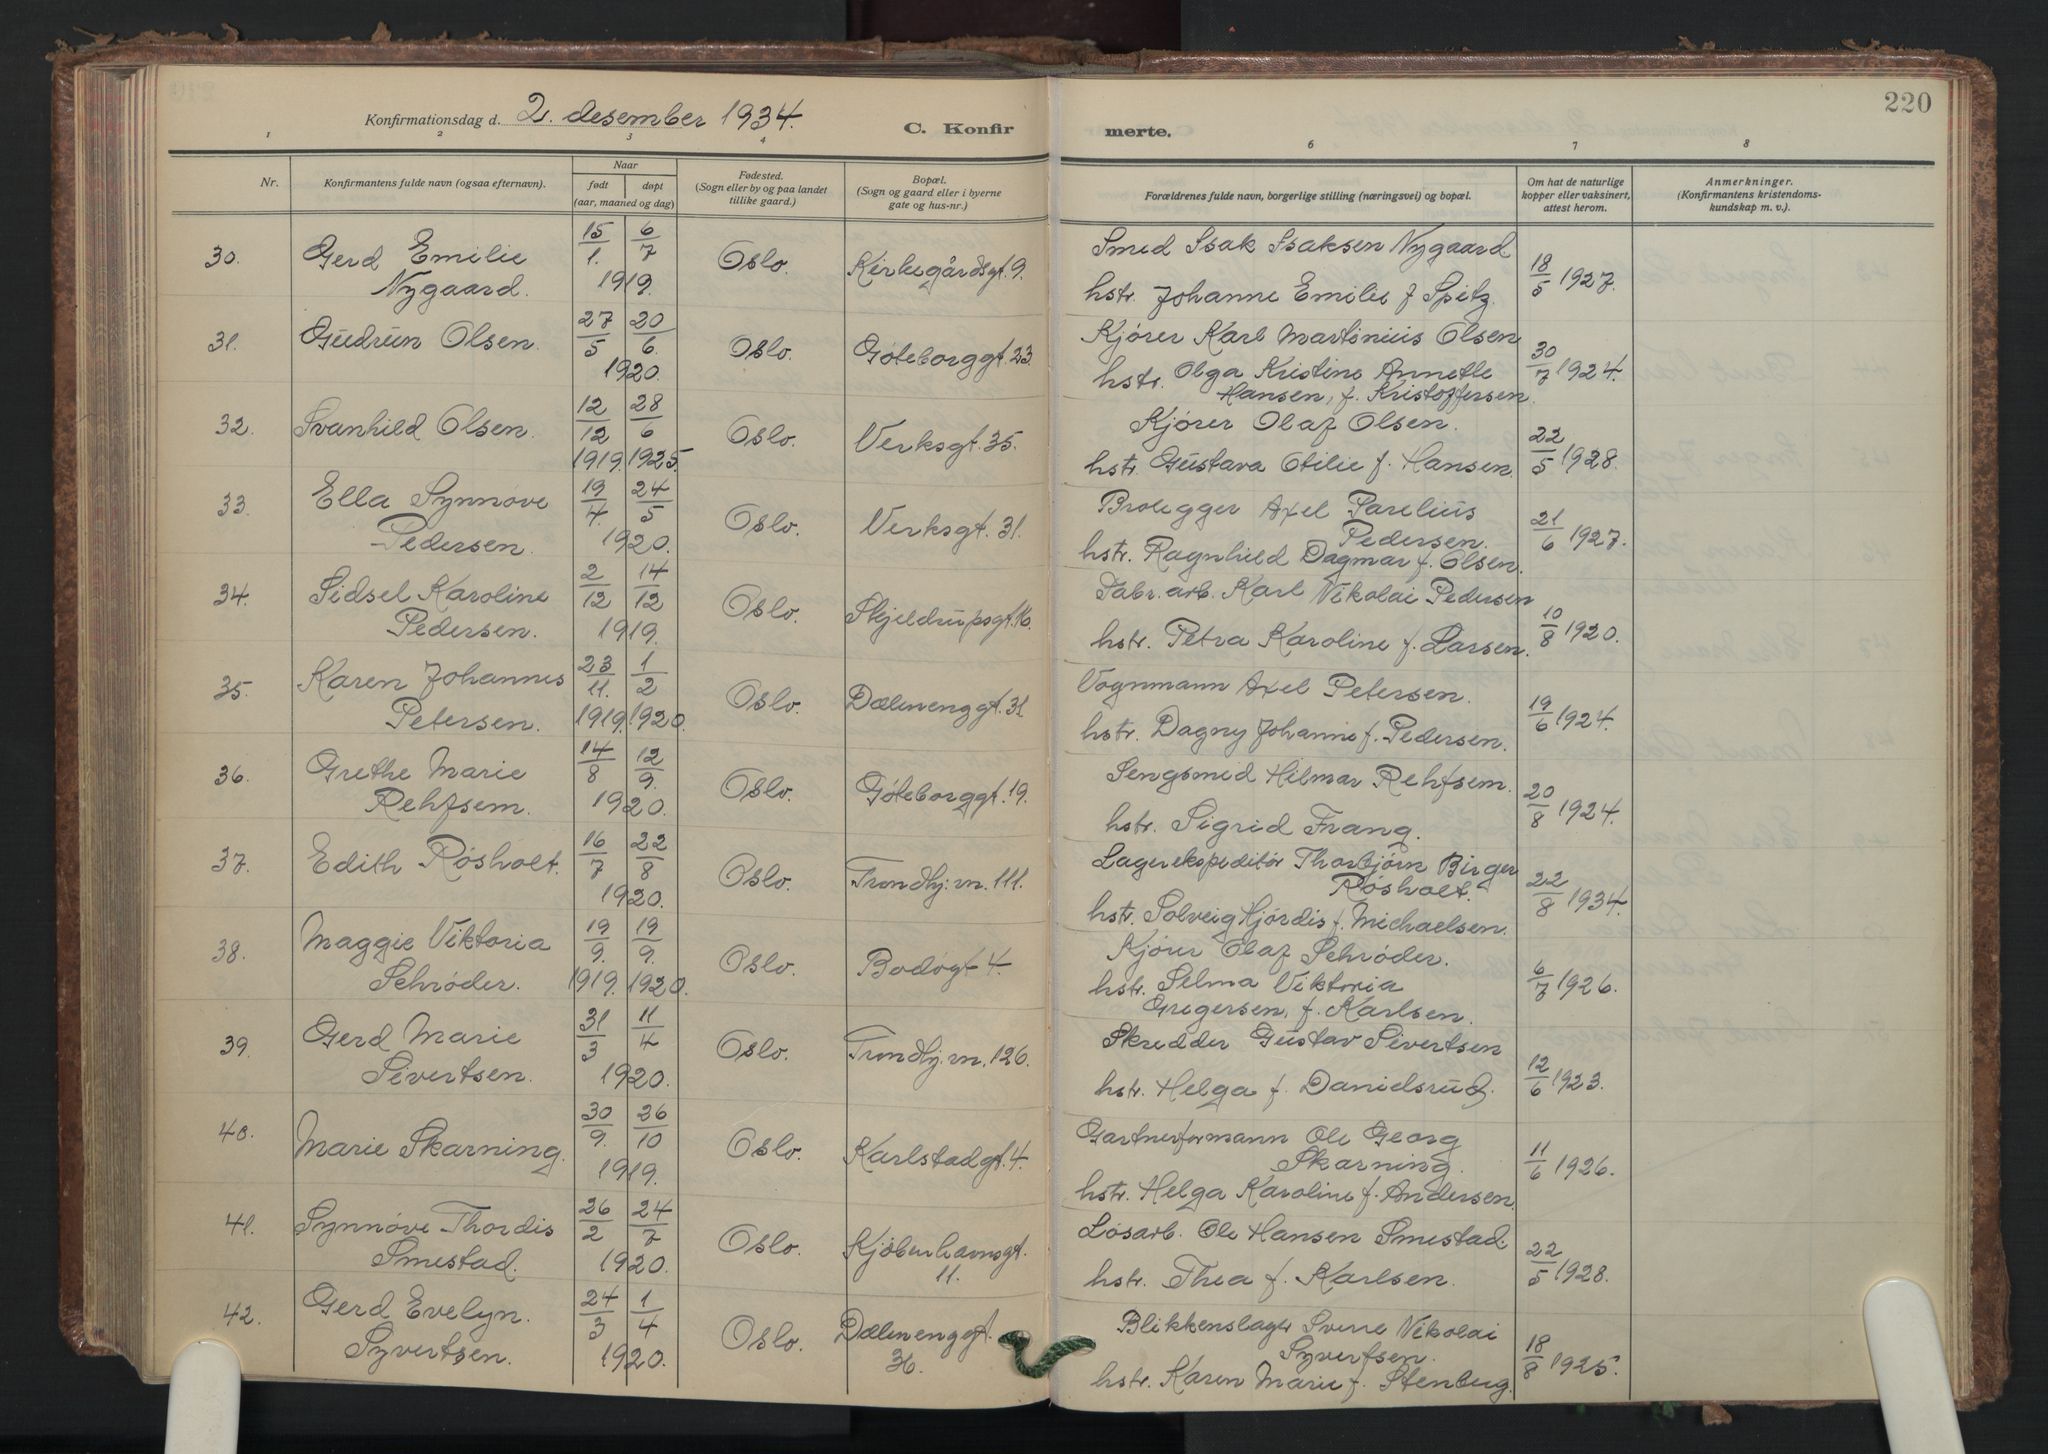 220
Konfirmationsdag d. 2. desember 1934.
C. Konfirmerte.
1 2 3 4 6 7 8
Nr.
Konfirmantens fulde navn (ogsaa efternavn).
Naar
født
døpt
(aar, maaned og dag)
Fødested.
(Sogn eller by og paa landet
tillike gaard.)
Bopæl.
(Sogn og gaard eller i byerne
gate og hus-nr.)
Forældrenes fulde navn, borgerlige stilling (næringsvei) og bopæl.
Om hat de naturlige
kopper eller vaksinert,
attest herom.
Anmerkninger.
(Konfirmantens kristendoms-
kundskap m. v.).
30. Gerd Emilie 15/1. 6/7 Oslo. Kirkegårdsgt. 9. Smed Isak Isaksen Nygaard 18/5 1927.
Nygaard. 1919. hstr. Johanne Emilie f Spitz.
31. Gudrun Olsen. 27/5 20/6. Oslo. Göteborggt. 23. Kjører Karl Martinius Olsen 30/7 1924.
1920. hstr. Olga Kristine Annette
Hansen, f. Kristoffersen.
32. Svanhild Olsen. 12/12 28/6 Oslo. Verksgt. 35. Kjører Olaf Olsen. 22/5 1928.
1919. 1925. hstr. Gustava Otilie f. Hansen.
33. Ella Synnøve 19/4. 24/5 Oslo. Verksgt. 31. Brolegger Axel Parelius 21/6 1927.
Pedersen. 1920. Pedersen.
hstr. Ragnhild Dagmar f. Olsen.
34. Sidsel Karoline 2/12 14/12 Oslo. Skjeldrupsgt. 16. Fabr. arb. Karl Nikolai Pedersen 10/8 1920.
Pedersen. 1919. hstr. Petra Karoline f. Larsen.
35. Karen Johannes 23/11. 1/2 Oslo. Dælenenggt. 31. Vognmann Axel Petersen. 19/6 1924.
Petersen. 1919. 1920. hstr. Dagny Johanne f. Pedersen.
36. Grethe Marie 14/8 12/9. Oslo. Göteborggt. 19. Sengsmed Hilmar Rehfsem. 20/8 1924.
Rehfsem. 1920. hstr. Sigrid Frang.
37. Edith Røsholt. 16/7 22/8 Oslo. Trondhj. vn. 111. Lagerekspeditør Thorbjørn Birger 22/8 1934.
1920. Røsholt.
hstr. Solveig Hjørdis f. Michaelsen.
38. Maggie Viktoria 19/9. 19/9. Oslo. Bodøgt 4. Kjører Olaf Schrøder. 6/7 1926.
Schrøder. 1919. 1920. hstr. Selma Viktoria
Gregersen, f. Karlsen.
39. Gerd Marie 31/3 11/4 Oslo. Trondhj. vn. 126. Skredder Gustav Sivertsen 12/6 1923.
Sivertsen. 1920. hstr. Helga f. Danielsrud.
40. Marie Skarning. 30/9. 26/10 Oslo. Karlstadgt. 4. Gartnerformann Ole Georg 11/6 1926.
1919. Skarning.
hstr. Helga Karoline f. Andersen.
41. Synnøve Thordis 26/2 24/7 Oslo. Kjøbenhavnsgt. Løsarb. Ole Hansen Smestad. 22/5 1928.
Smestad. 1920. 11. hstr. Thea f. Karlsen.
42. Gerd Evelyn. 24/3 1/4 Oslo. Dælenenggt. Blikkenslager Sverre Nikolai 18/8 1925.
Syvertsen. 1920. 36. Syvertsen.
hstr. Karen Marie f. Stenberg.